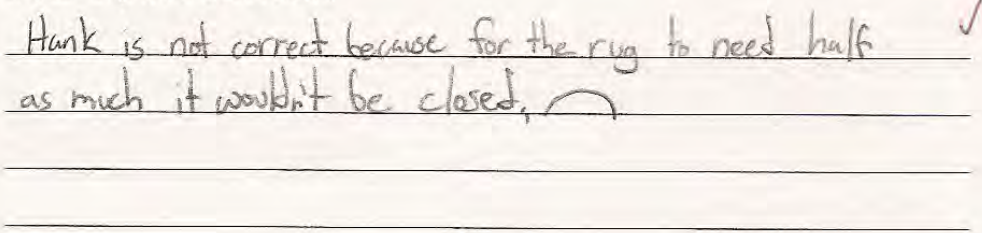 Hank is not correct because for the rug to need half
as much it wouldn't be closed.